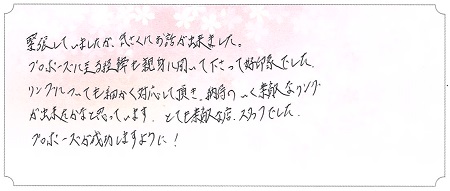 緊張していましたが、気さくにお話が出来ました。
プロポーズに至る経緯も親身に聞いて下さって好印象でした。
リングについても細かく対応して頂き、納得のいく素敵なリング
が出来たかなと思っています。とても素敵な店、スタッフでした。
プロポーズが成功しますように!